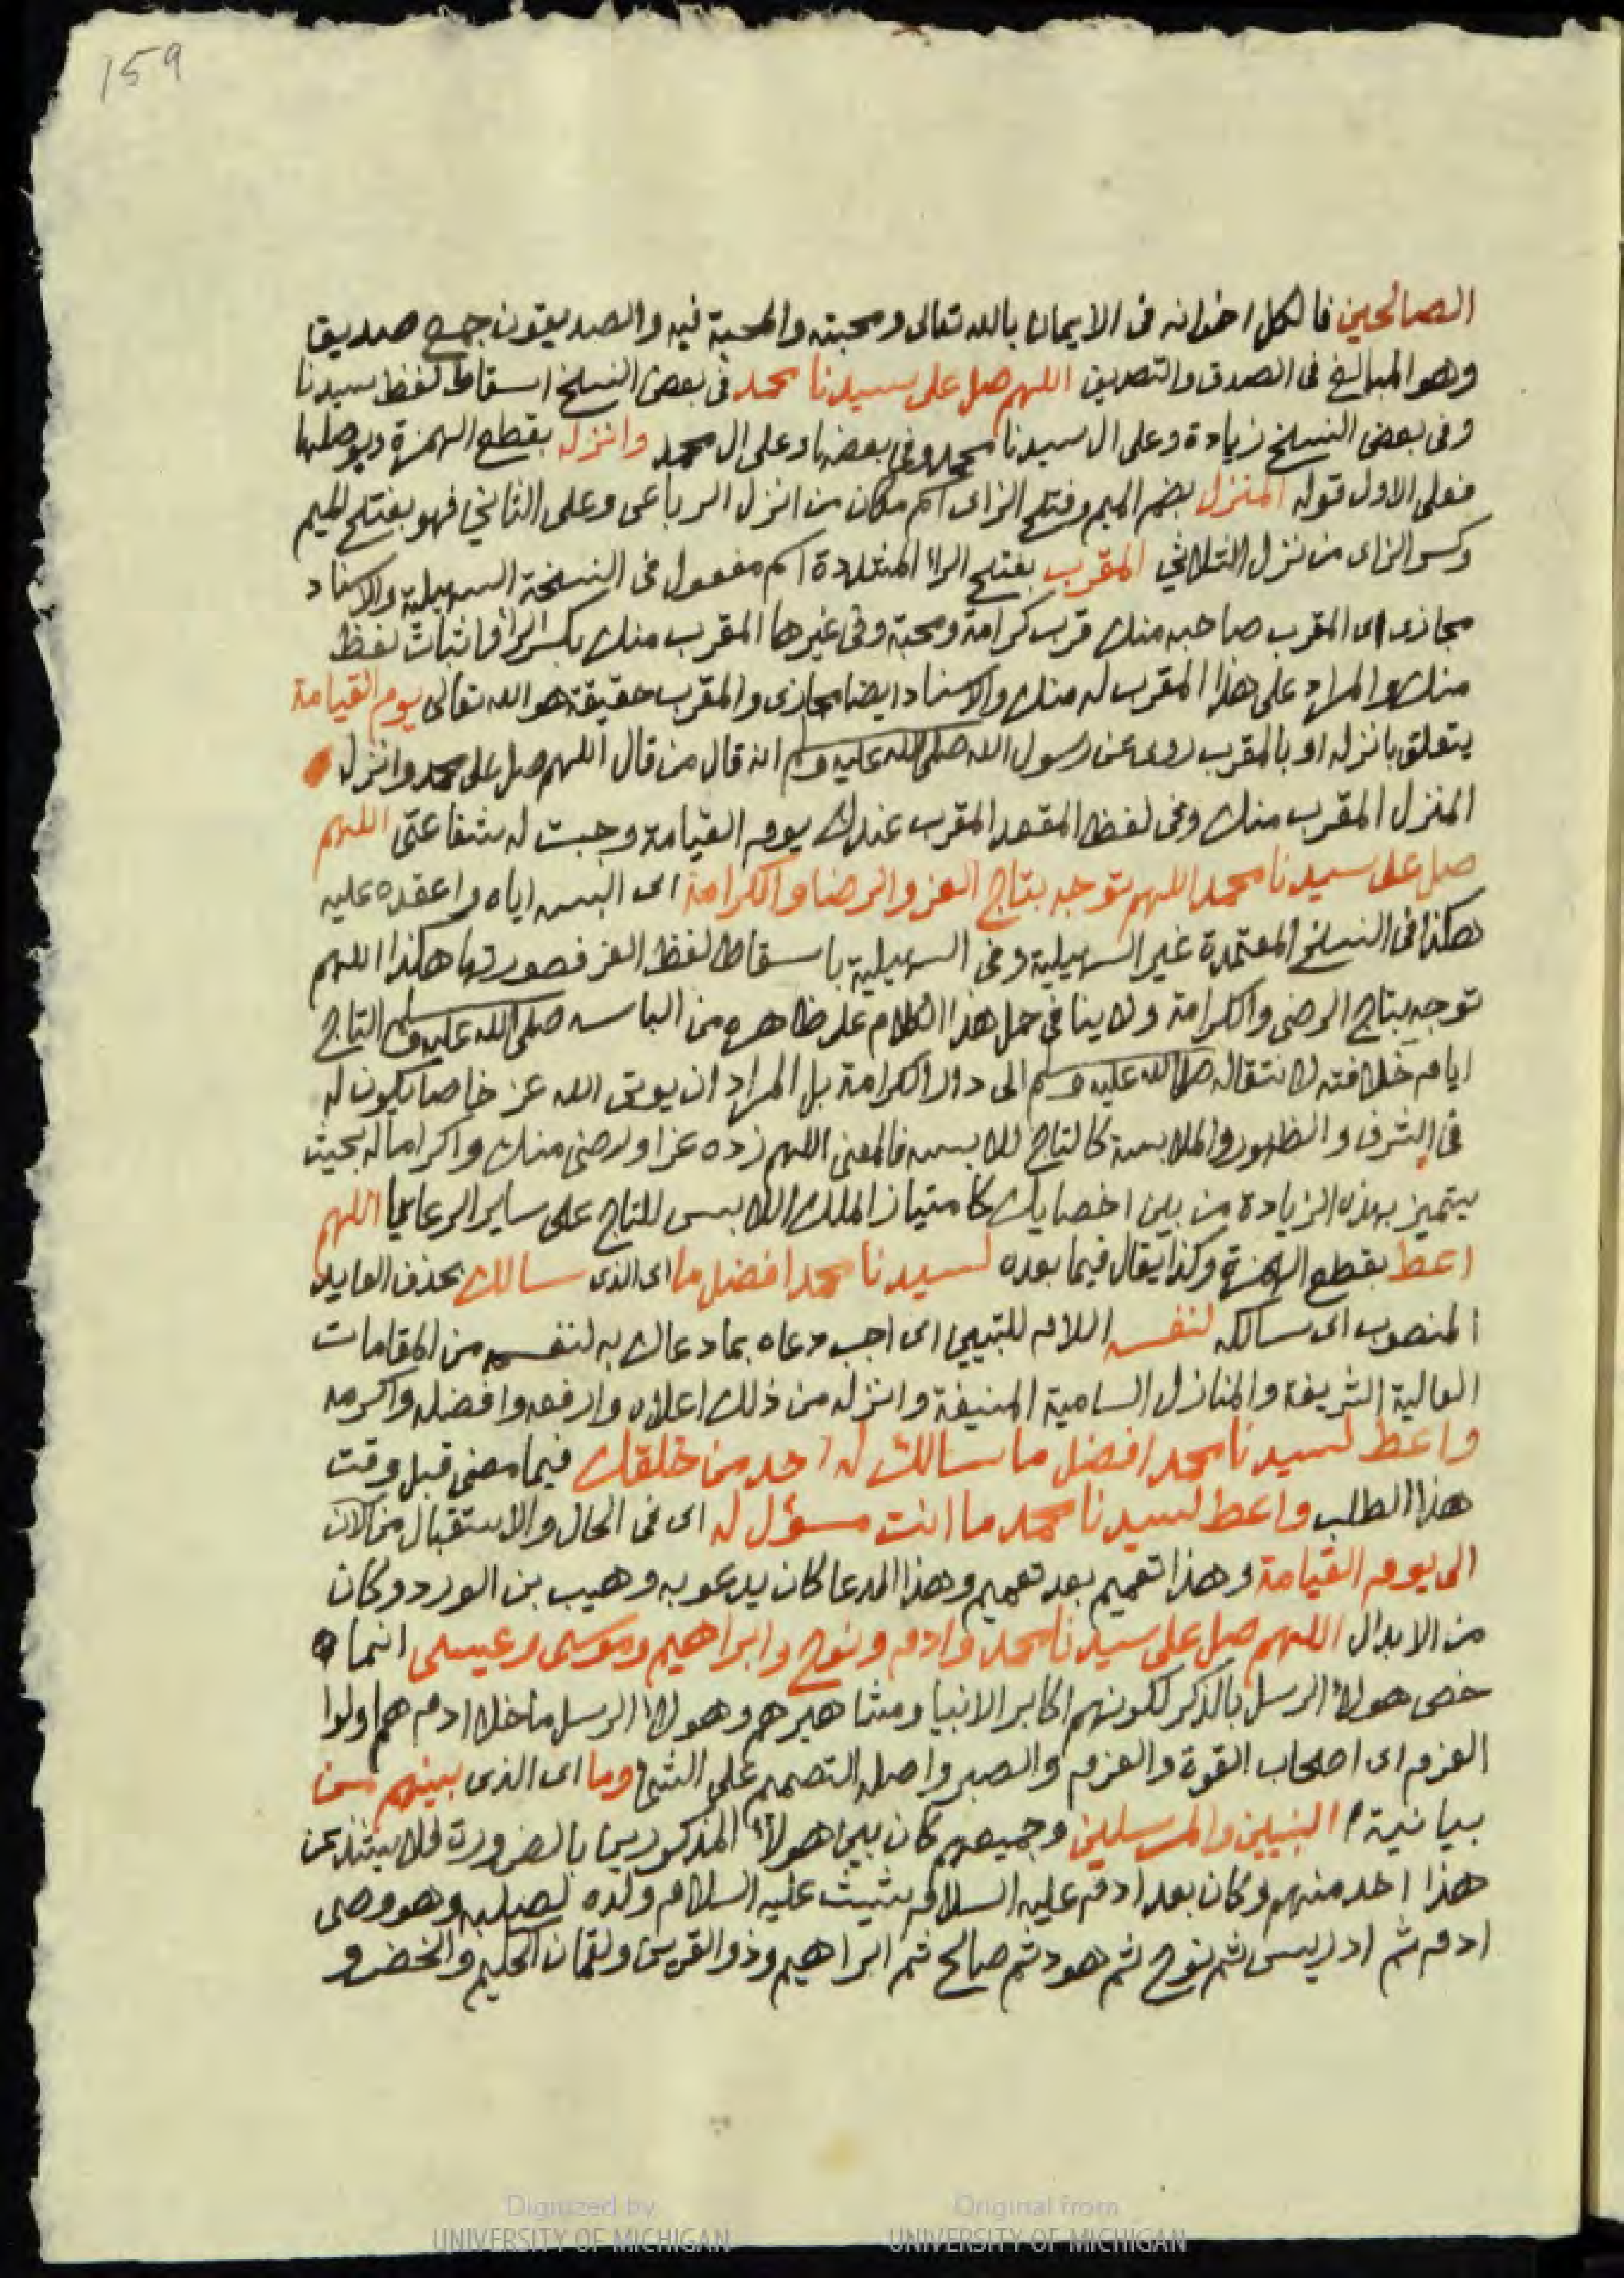 159
الصالحين فالكل اخوانه فى الايمان بالله تعالى ومحبته والمحبة فيه والصديقون جمع صديق
وهو المبالغ فى الصدق والتصديق اللهم صل على سيدنا محمد فى بعض النسخ اسقاط لفظ سيدنا
وفى بعض النسخ زيادة وعلى ال سيدنا محمد وفى بعضها وعلى ال محمد وانزله بقطع الهمزة وبوصلها
فعلى الاول قوله المنزل بضم الميم وفتح الزاى اسم مكان من انزل الرباعى وعلى الثاني فهو بفتح الميم
وكسر الزاى من نزل الثلاثي المقرب بفتح الراء المشددة اسم مفعول فى النسخة السهيلية والاسناد
مجازى اى المقرب صاحبه منك قرب كرامة ومحبة وفى غيرها المقرب منك بكسر الراء فاثبات لفظ
منك والمراد على هذا المقرب له منك والاسناد ايضا مجازى والمقرب حقيقة هو الله تعالى يوم القيامة
يتعلق بانزله او بالمقرب روى عن رسول الله صلى الله عليه وسلم انه قال من قال اللهم صل على محمد وانزله
المنزل المقرب منك وفى لفظ المقعد المقرب عندك يوم القيامة وجبت له شفاعتى اللهم
صل على سيدنا محمد اللهم توجه بتاج العز والرضا والكرامة اى البسه اياه واعقده عليه
هكذا فى النسخ المعتمدة غير السهيلية وفى السهيلية باسقاط لفظ العز فصورتها هكذا اللهم
توجه بتاج الرضى والكرامة ولا ينافى حمل هذا الكلام على ظاهره من الباسه صلى الله عليه وسلم التاج
ايام خلافته لانتقاله صلى الله عليه وسلم الى دار الكرامة بل المراد ان يوتى الله عز خاصا يكون له
فى الشرف والظهور والملابسة كالتاج للابسه فالمعنى اللهم زده عزا ورضى منك واكراما له بحيث
يتميز بهذه الزيادة من بين اخصايك كامتياز الملك اللابس للتاج على ساير الرعايا اللهم
اعط بقطع الهمزة وكذا يقال فيما بعده لسيدنا محمد افضل ما اى الذى سالك بحذف العايد
المنصوب اى سالكه لنفسه اللام للتبيين اى اجب دعاه بما دعاك به لنفسه من المقامات
العالية الشريفة والمنازل السامية المنيفة وانزله من ذلك اعلاه وارفعه وافضله واكرمه
واعط لسيدنا محمد افضل ما سالك له احد من خلقك فيما مضى قبل وقت
هذا الطلب واعط لسيدنا محمد ما انت مسؤل له اى فى الحال والاستقبال من الان
الى يوم القيامة وهذا تعميم بعد تعميم وهذا الدعا كان يدعو به وهيب بن الورد وكان
من الابدال اللهم صل على سيدنا محمد وادم ونوح وابراهيم وموسى وعيسى انما
خص هولاء الرسل بالذكر لكونهم اكابر الانبيا ومشاهيرهم وهولاء الرسل ما خلا ادم هم اولوا
العزم اى اصحاب القوة والعزم والصبر واصله التصميم على الشئ وما اى الذى بينهم من
بيانية النبيين والمرسلين وجميعهم كان بين هولاء المذكورين بالضرورة فلا يشذ عن
هذا احد منهم وكان بعد ادم عليه السلام شيث عليه السلام ولده لصلبه وهو وصى
ادم ثم ادريس ثم نوح ثم هود ثم صالح ثم ابراهيم وذو القرنين ولقمان الحكيم والخضر و
Digitized by
UNIVERSITY OF MICHIGAN
Original from
UNIVERSITY OF MICHIGAN